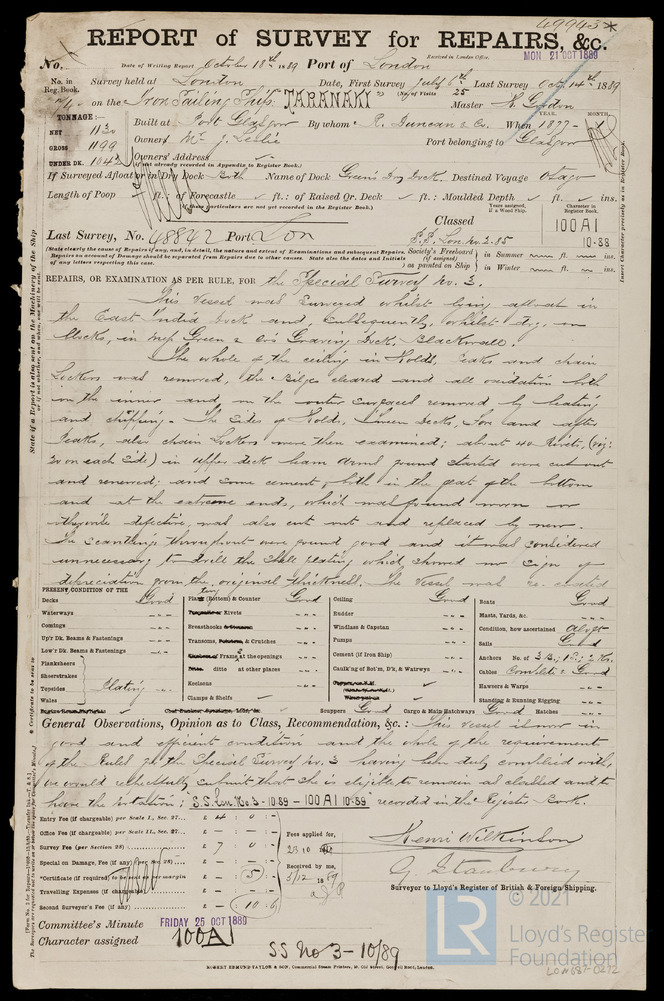 49943*
REPORT of SURVEY for REPAIRS, &c.
No. Date of Writing Report October 18th 1889 Port of London Received in London Office. MON 21 OCT 1889
No. in Reg. Book. Survey held at London Date, First Survey July 8th Last Survey Octr 14th 1889
on the Iron Sailing Ship "TARANAKI" (No. of Visits 25) Master
TONNAGE:— YEAR. MONTH.
NET 1130 Built at Port Glasgow By whom R. Duncan & Co. When 1877
GROSS 1199 Owners Mr J. Leslie Port belonging to Glasgow
UNDER DK. Owners' Address
(if not already recorded in Appendix to Register Book.)
If Surveyed Afloat or in Dry Dock Both Name of Dock Green's Dry Dock Destined Voyage Otago
Length of Poop ft.: of Forecastle ft.: of Raised Qr. Deck ft.: Moulded Depth ft. ins.
(If these particulars are not yet recorded in the Register Book.)
Classed Years assigned if a Wood Ship. Character in Register Book.
Last Survey, No. 48842 Port Lon S.S. Lon. No. 2. 85 100A1 10.88
(State clearly the cause of Repairs if any, and, in detail, the nature and extent of Examinations and subsequent Repairs. Society's Freeboard in Summer ft. ins.
Repairs on account of Damage should be separated from Repairs due to other causes. State also the dates and Initials (if assigned)
of any letters respecting this case. as painted on Ship in Winter ft. ins.
REPAIRS, OR EXAMINATION AS PER RULE, FOR the Special Survey No. 3.
This vessel was surveyed whilst lying afloat in
the East India Dock and, subsequently, whilst dry, on
blocks, in Messrs Green & Co's Graving Dock, Blackwall.
The whole of the ceiling in Holds, Peaks and chain
Lockers was removed, the Bilges cleared and all oxidation both
on the inner and on the outer surfaces removed by beating
and chipping. The sides of Holds, 'tween decks, Fore and after
Peaks, also chain Lockers were then examined; about 40 Rivets, (viz:
20 on each side) in upper deck beam arms found started were cut out
and renewed; and some cement, both in the flat of the bottom
and at the extreme ends, which was found worn or
otherwise defective, was also cut out and replaced by new.
The scantlings throughout were found good and it was considered
unnecessary to drill the shell plating which showed no sign of
depreciation from the original thickness. The vessel was re-coated
PRESENT CONDITION OF THE
Decks Good
Waterways
Comings
Up'r Dk. Beams & Fastenings
Low'r Dk. Beams & Fastenings
Planksheers
Sheerstrakes
Topsides Plating
Wales
Plating (Bottom) & Counter Good
Rivets
Breasthooks
Transoms, & Crutches
Frames at the openings
ditto at other places
Keelsons
Clamps & Shelfs
Ceiling Good
Rudder
Windlass & Capstan
Pumps
Cement (if Iron Ship)
Caulk'ng of Bot'm, D'k, & Watrwys
Scuppers Good Cargo & Main Hatchways Good Hatches
Boats Good
Masts, Yards, &c.
Condition, how ascertained Aloft
Sails Good
Anchors No. of 3 B.; 1 S.; 2 K.
Cables Complete & Good
Hawsers & Warps
Standing & Running Rigging
General Observations, Opinion as to Class, Recommendation, &c.: This vessel is now in
good and efficient condition and the whole of the requirements
of the Rules for the Special Survey No. 3 having been duly complied with,
we would respectfully submit that she is eligible to remain as classed and to
have the notation; "S.S. Lon. No. 3 - 10.89 - 100A1 10.89" recorded in the Register Book.
Entry Fee (if chargeable) per Scale I., Sec. 27... £ 4 : 0 : -
Office Fee (if chargeable) per Scale II., Sec. 27... £ - : - : -
Survey Fee (per Section 28) £ 7 : 0 : -
Special or Damage, Fee (if any) (per Sec. 28) £ - : - : -
*Certificate (if required) to be sent as per margin £ : 5 : -
Travelling Expenses (if chargeable) £ - : - : -
Second Surveyor's Fee (if any) £ : 10 : 6
Fees applied for, 23.10
Received by me, 3/12 1889
Henri Wilkinson
G. Stanbury
Surveyor to Lloyd's Register of British & Foreign Shipping.
Committee's Minute FRIDAY 25 OCT 1889
Character assigned 100A1
SS No 3 - 10/89
ROBERT EDMUND TAYLOR & SON, Commercial Steam Printers, 19, Old Street, Goswell Road, London.
© 2021
LR Lloyd's Register
Foundation
LON687-0272